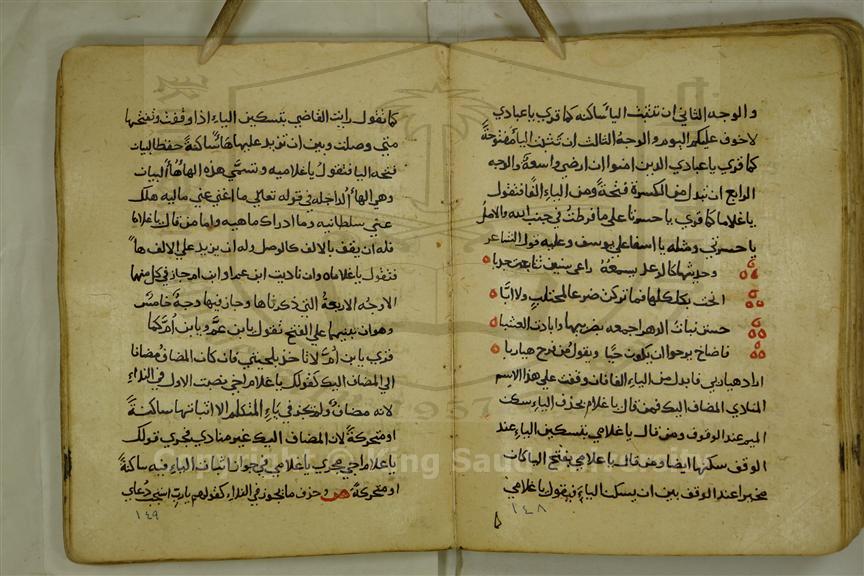 والوجه الثاني ان تثبت اليا ساكنه كما قري يا عبادي
لا خوف عليكم اليوم والوجه الثالث ان تثبت اليا مفتوحة
كما قري يا عبادي الذين امنوا ان ارضي واسعة والوجه
الرابع ان تبدل من الكسرة فتحة ومن الياء الفا فتقول
يا غلاما كما قري يا حسرتا علي ما فرطت في جنب الله والاصل
يا حسرتي ومثله يا اسفا علي يوسف وعليه قول الشاعر
وحديثها كالرعد يسمعه راعي سنين تتابعت جدبا
حسن نبات
فاصاخ يرجو ان يكون حيا ويقول من فرح هيا ربا
اراد هيا ربي فابدل من الياء الفا فان وقفت علي هذا الاسم
المنادي المضاف اليك فمن قال يا غلام بحذف الياء سكن
الميم عند الوقوف ومن قال يا غلامي بتسكين الياء عند
الوقف سكنها ايضا ومن قال يا غلامي بفتح اليا كان
مخيرا عند الوقف بين ان يسكن الياء فيقول يا غلامي
١٤٨
كما تقول رايت القاضي بتسكين الياء اذا وقفت وتفتحها
متي وصلت وبين ان تزيد عليها هاء ساكنة حفظا لبيان
فتحه اليا فتقول يا غلاميه وتسمي هذه الهاء هاء البيان
وهي الهاء الداخله في قوله تعالي ما اغني عني ماليه هلك
عني سلطانيه وما ادراك ماهيه واما من قال يا غلاما
فله ان يقف بالالف كالوصل وله ان يزيد علي الالف هاء
فتقول يا غلاماه وان ناديت ابن عم او ابن ام جاز في كل منها
الاوجه الاربعة التي ذكرناها وجاز فيها وجه خامس
وهو ان تبنيهما علي الفتح تقول يا بن عم ويا بن ام كما
قري يا بن ام لا تاخذ بلحيتي فان كان المضاف مضافا
الي المضاف اليك كقولك يا غلام اخي نصبت الاول في النداء
لانه مضاف ولم تجز في ياء المتكلم الا اثباتها ساكنة
او متحركة لان المضاف اليك غير منادي فجري قولك
يا غلام اخي مجري يا غلامي في جواز اثبات الياء فيه ساكنة
او متحركة ص وحذف ما يجوز في النداء كقولهم يا رب استجب دعاي
١٤٩
Copyright © King Saud University
1957